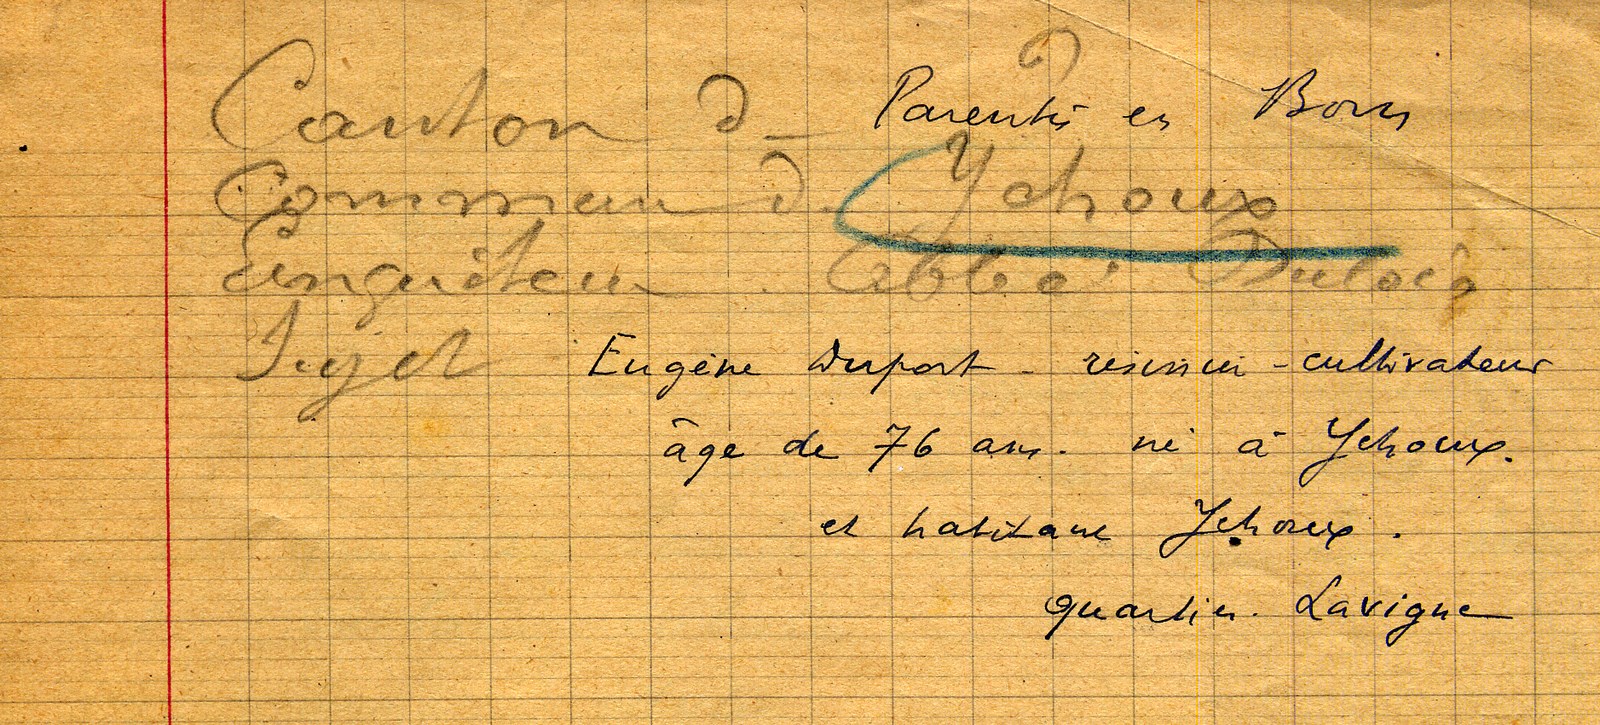 Canton de Parentis en Born
Commune d. Ychoux
Enquêteur. Abbé
Sujet Eugène Duport - résinier - cultivateur
âge de 76 ans. né à Ychoux.
et habitant Ychoux.
quartier. Lavigne